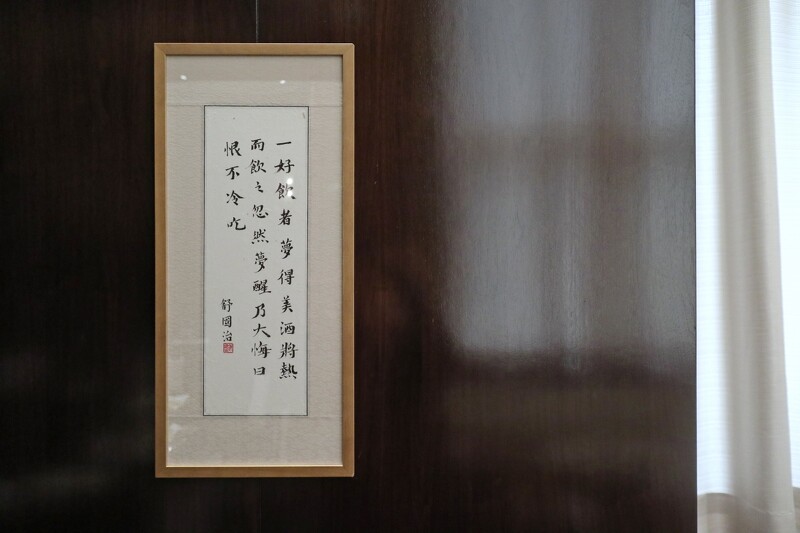 一好飲者夢得美酒將熱
而飲之忽然夢醒乃大悔曰
恨不冷吃
舒國治